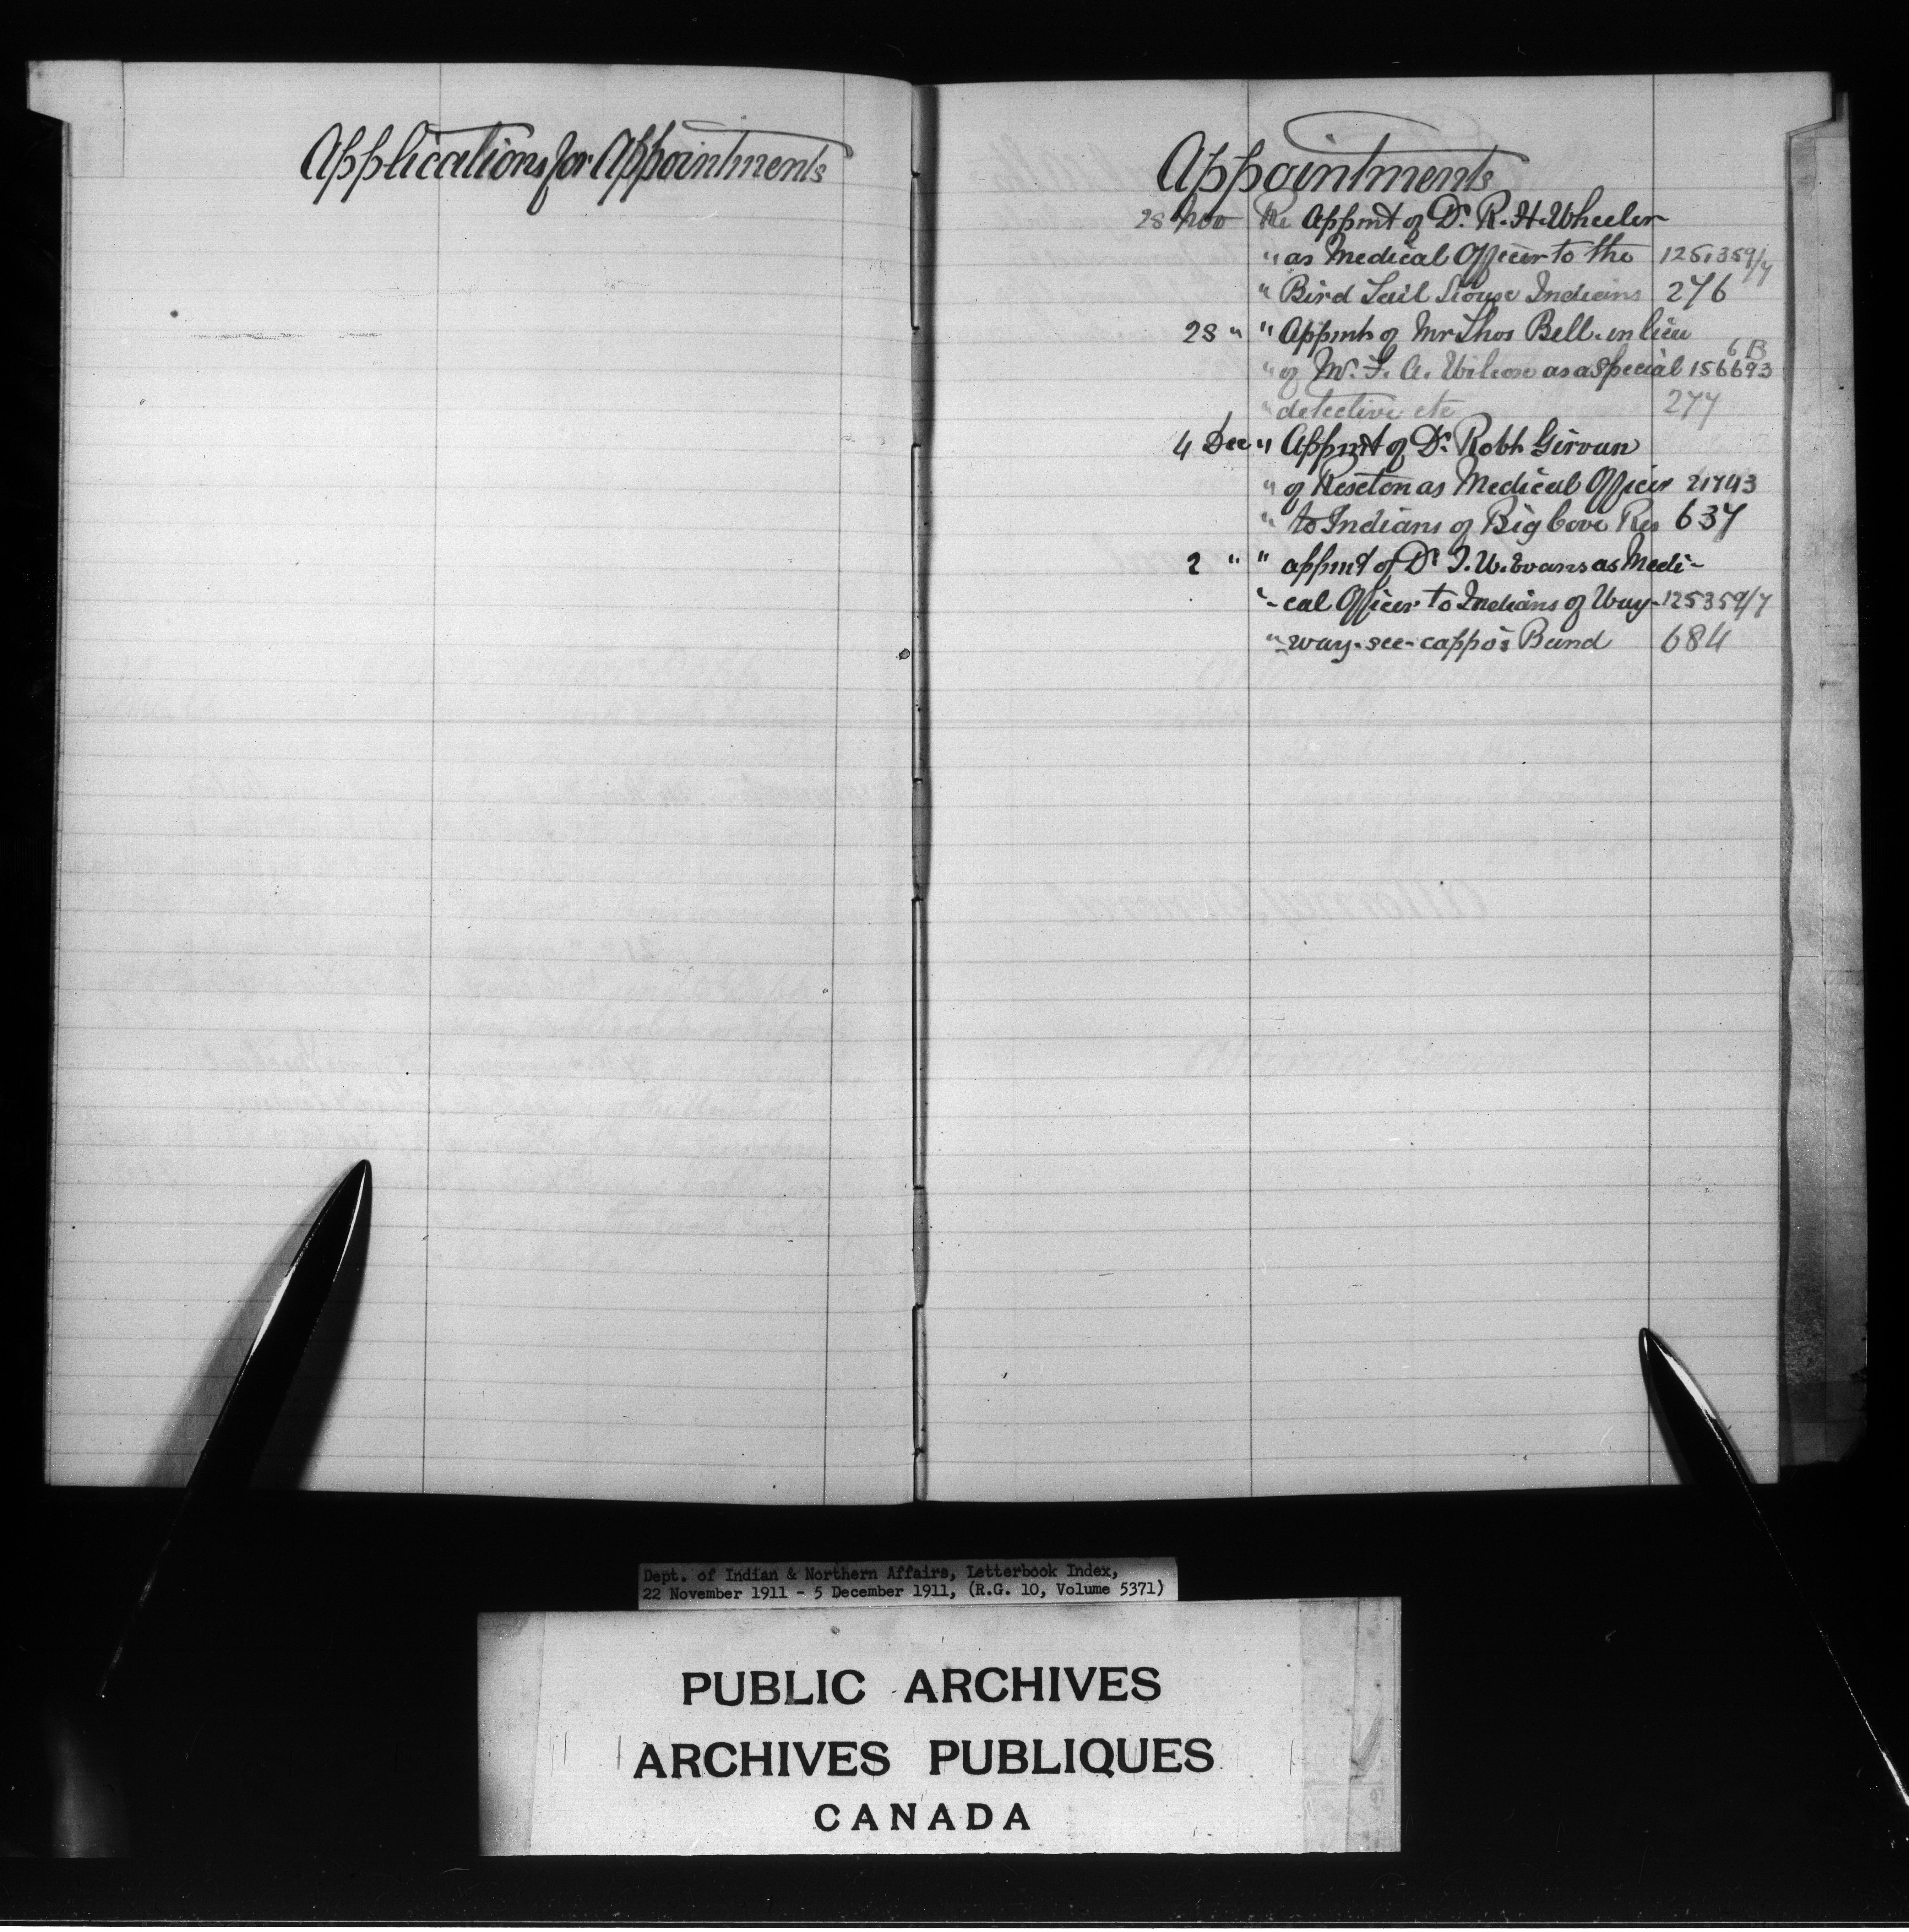 Applications for Appointments
Appointments
28 Nov Re Appmt of Dr. R. H. Wheeler
" as Medical Officer to the 125,359/7
" Bird Tail Siouse Indians 276
28 " " Appmt of Mr Thos Bell in lieu
" of Mr. F. A. Wilcox as a special 156693 6B
" detective etc 277
4 Dec " Appmt of Dr. Robt Girvan
" of Rexton as Medical Officer 21743
" to Indians of Big Cove Res 637
2 " " appmt of Dr J. W. Evans as Medi-
"- cal Officer to Indians of Way- 125359/7
" -way-see-cappo's Band 684
Attorney General
Dept. of Indian & Northern Affairs, Letterbook Index,
22 November 1911 - 5 December 1911, (R.G. 10, Volume 5371)
PUBLIC ARCHIVES
ARCHIVES PUBLIQUES
CANADA